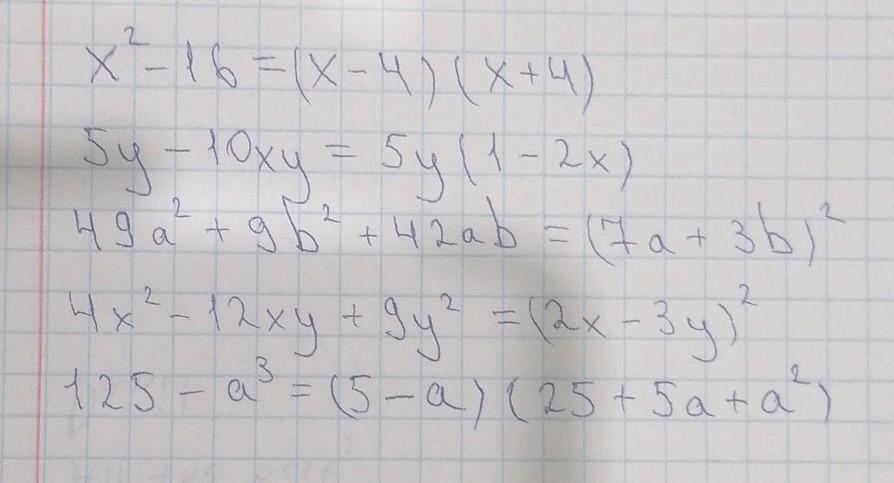 x² - 16 = (x - 4)(x + 4)
5y - 10xy = 5y(1 - 2x)
49a² + 9b² + 42ab = (7a + 3b)²
4x² - 12xy + 9y² = (2x - 3y)²
125 - a³ = (5 - a)(25 + 5a + a²)